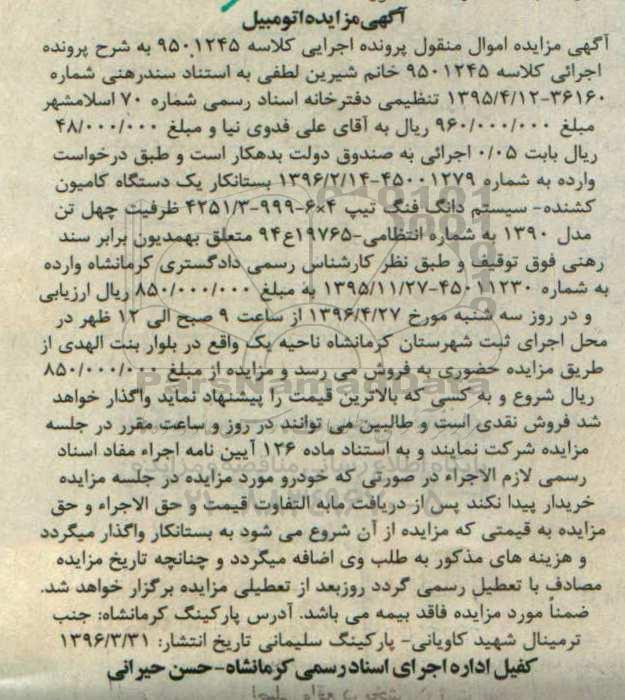 آگهی مزایده اتومبیل
آگهی مزایده اموال منقول پرونده اجرایی کلاسه ۹۵۰۱۲۴۵ به شرح پرونده
اجرائی کلاسه ۹۵۰۱۲۴۵ خانم شیرین لطفی به استناد سندرهنی شماره
۳۶۱۶۰-۱۳۹۵/۴/۱۲ تنظیمی دفترخانه اسناد رسمی شماره ۷۰ اسلامشهر
مبلغ ۹۶۰/۰۰۰/۰۰۰ ریال به آقای علی فدوی نیا و مبلغ ۴۸/۰۰۰/۰۰۰
ریال بابت ۰/۰۵ اجرائی به صندوق دولت بدهکار است و طبق درخواست
وارده به شماره ۴۵۰۰۱۲۷۹-۱۳۹۶/۲/۱۴ بستانکار یک دستگاه کامیون
کشنده- سیستم دانگ فنگ تیپ ۴×۶-۹۹۹-۴۲۵۱/۳ ظرفیت چهل تن
مدل ۱۳۹۰ به شماره انتظامی-۱۹۷۶۵ع۹۴ متعلق بهمدیون برابر سند
رهنی فوق توقیف و طبق نظر کارشناس رسمی دادگستری کرمانشاه وارده
به شماره ۴۵۰۱۱۲۳۰-۱۳۹۵/۱۱/۲۷ به مبلغ ۸۵۰/۰۰۰/۰۰۰ ریال ارزیابی
و در روز سه شنبه مورخ ۱۳۹۶/۴/۲۷ از ساعت ۹ صبح الی ۱۲ ظهر در
محل اجرای ثبت شهرستان کرمانشاه ناحیه یک واقع در بلوار بنت الهدی از
طریق مزایده حضوری به فروش می رسد و مزایده از مبلغ ۸۵۰/۰۰۰/۰۰۰
ریال شروع و به کسی که بالاترین قیمت را پیشنهاد نماید واگذار خواهد
شد فروش نقدی است و طالبین می توانند در روز و ساعت مقرر در جلسه
مزایده شرکت نمایند و به استناد ماده ۱۲۶ آیین نامه اجراء مفاد اسناد
رسمی لازم الاجراء در صورتی که خودرو مورد مزایده در جلسه مزایده
خریدار پیدا نکند پس از دریافت مابه التفاوت قیمت و حق الاجراء و حق
مزایده به قیمتی که مزایده از آن شروع می شود به بستانکار واگذار میگردد
و هزینه های مذکور به طلب وی اضافه میگردد و چنانچه تاریخ مزایده
مصادف با تعطیل رسمی گردد روزبعد از تعطیلی مزایده برگزار خواهد شد.
ضمناً مورد مزایده فاقد بیمه می باشد. آدرس پارکینگ کرمانشاه: جنب
ترمینال شهید کاویانی- پارکینگ سلیمانی تاریخ انتشار: ۱۳۹۶/۳/۳۱
کفیل اداره اجرای اسناد رسمی کرمانشاه-حسن حیرانی
ParsNamadData